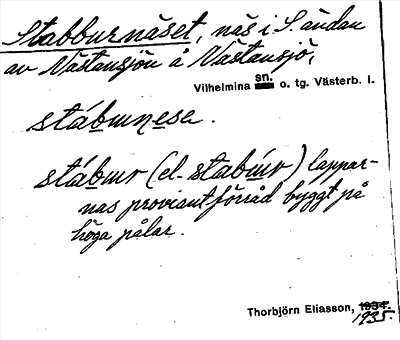 Stabburnäset, näs i S. ändan
av Västansjön å Västansjö,
Vilhelmina sn. o. tg. Västerb. l.
stáburnesa.
stábur (el. stabúr) lappar-
nas proviantförråd byggt på
höga pålar.
Thorbjörn Eliasson, 1934.
1935.